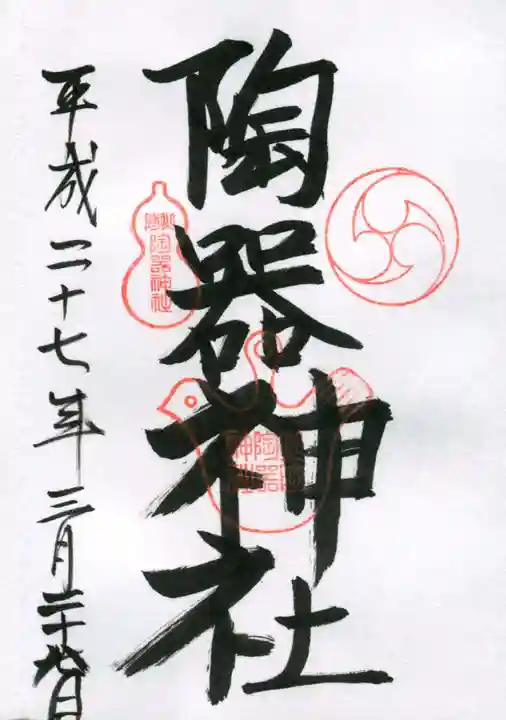 陶器神社
陶器
神社
陶器神社
平成二十七年三月二十九日